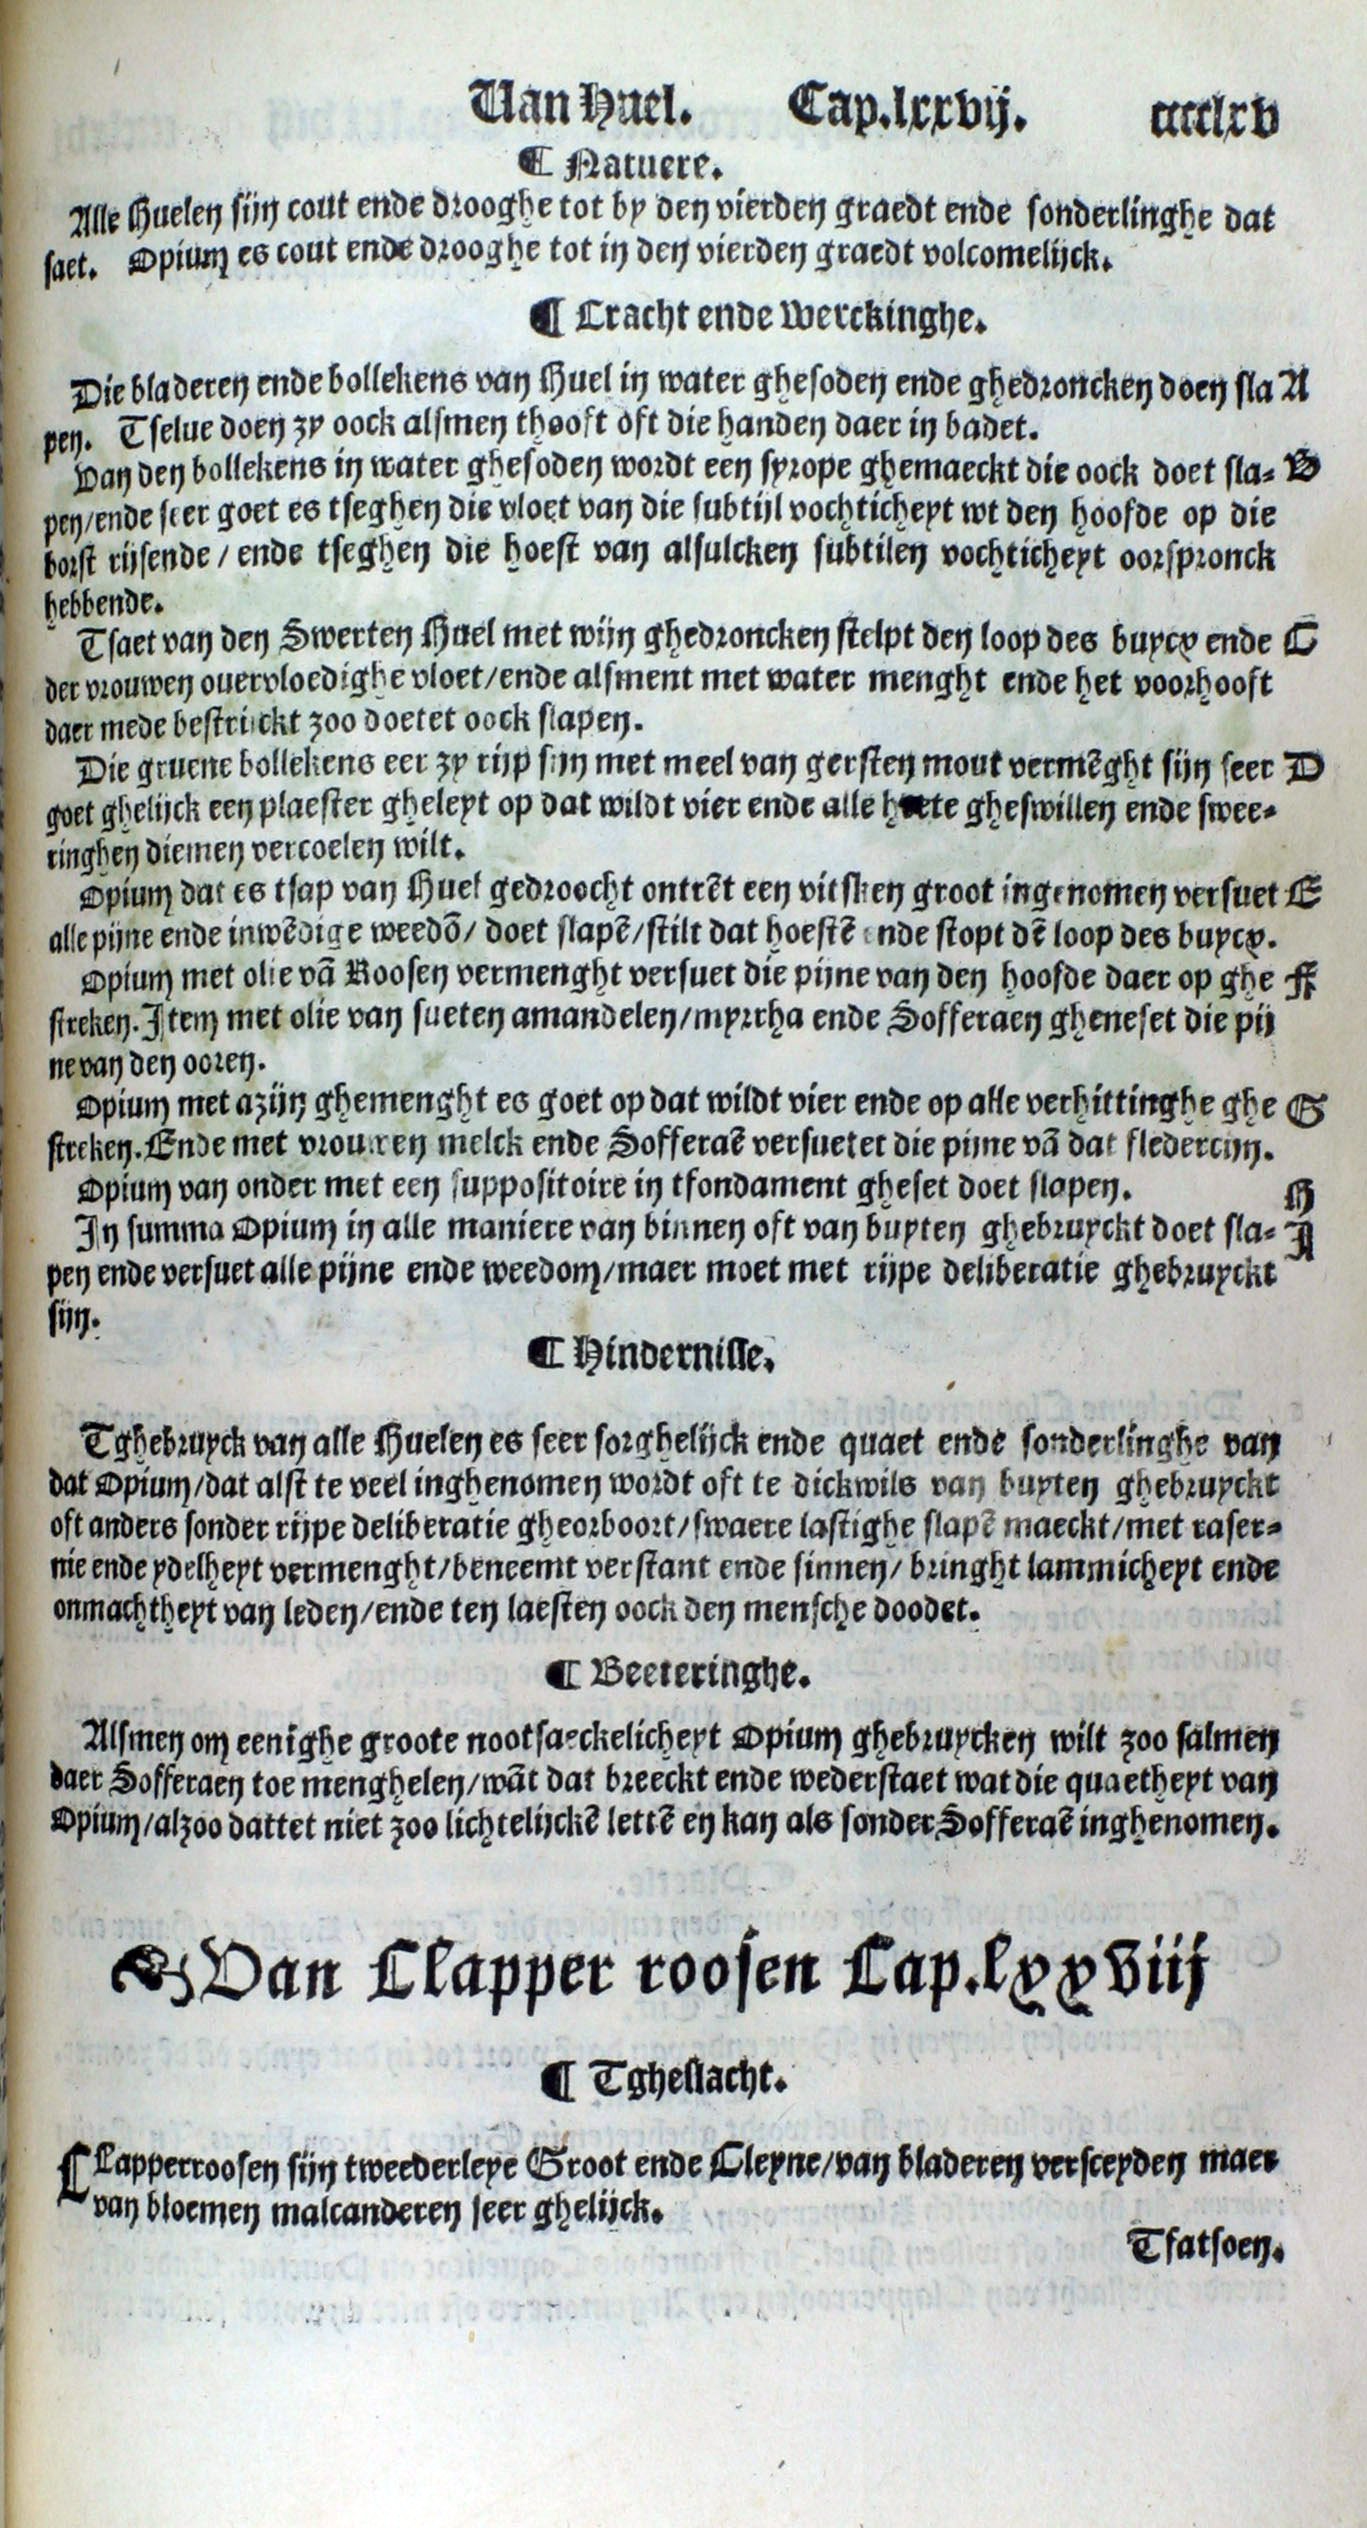 Van Huel. Cap.lxxvij. cccclxv
¶ Natuere.
Alle Huelen sijn cout ende drooghe tot by den vierden graedt ende sonderlinghe dat
saet. Opium es cout ende drooghe tot in den vierden graedt volcomelijck.
¶ Cracht ende Werckinghe.
Die bladeren ende bollekens van Huel in water ghesoden ende ghedroncken doen sla A
pen. Tselue doen zy oock alsmen thooft oft die handen daer in badet.
Van den bollekens in water ghesoden wordt een syrope ghemaeckt die oock doet sla= B
pen/ende seer goet es tseghen die vloet van die subtijl vochticheyt wt den hoofde op die
borst rijsende/ende tseghen die hoest van alsulcken subtilen vochticheyt oorspronck
hebbende.
Tsaet van den Swerten Huel met wijn ghedroncken stelpt den loop des buycx ende C
der vrouwen ouervloedighe vloet/ende alsment met water menght ende het voorhooft
daer mede bestrijckt zoo doetet oock slapen.
Die gruene bollekens eer zy rijp sijn met meel van gersten mout vermẽght sijn seer D
goet ghelijck een plaester gheleyt op dat wildt vier ende alle heete gheswillen ende swee=
ringhen diemen vercoelen wilt.
Opium dat es tsap van Huel gedroocht ontrẽt een vitsken groot ingenomen versuet E
alle pijne ende inwẽdige weedõ/doet slapẽ/stilt dat hoestẽ ende stopt dẽ loop des buycx.
Opium met olie vã Roosen vermenght versuet die pijne van den hoofde daer op ghe F
streken. Item met olie van sueten amandelen/myrrha ende Sofferaen gheneset die pij
ne van den ooren.
Opium met azijn ghemenght es goet op dat wildt vier ende op alle verhittinghe ghe G
streken. Ende met vrouwen melck ende Sofferaẽ versuetet die pijne vã dat fledercijn.
Opium van onder met een suppositoire in tfondament gheset doet slapen. H
In summa Opium in alle maniere van binnen oft van buyten ghebruyckt doet sla= I
pen ende versuet alle pijne ende weedom/maer moet met rijpe deliberatie ghebruyckt
sijn.
¶ Hindernisse.
Tghebruyck van alle Huelen es seer sorghelijck ende quaet ende sonderlinghe van
dat Opium/dat alst te veel inghenomen wordt oft te dickwils van buyten ghebruyckt
oft anders sonder rijpe deliberatie gheorboort/swaere lastighe slapẽ maeckt/met raser=
nie ende ydelheyt vermenght/beneemt verstant ende sinnen/bringht lammicheyt ende
onmachtheyt van leden/ende ten laesten oock den mensche doodet.
¶ Beeteringhe.
Alsmen om eenighe groote nootsaeckelicheyt Opium ghebruycken wilt zoo salmen
daer Sofferaen toe menghelen/wãt dat breeckt ende wederstaet wat die quaetheyt van
Opium/alzoo dattet niet zoo lichtelijckẽ lettẽ en kan als sonder Sofferaẽ inghenomen.
Van Clapper roosen Cap.lxxviij
¶ Tgheslacht.
Clapperroosen sijn tweederleye Groot ende Cleyne/van bladeren versceyden maer
van bloemen malcanderen seer ghelijck.
Tfatsoen.